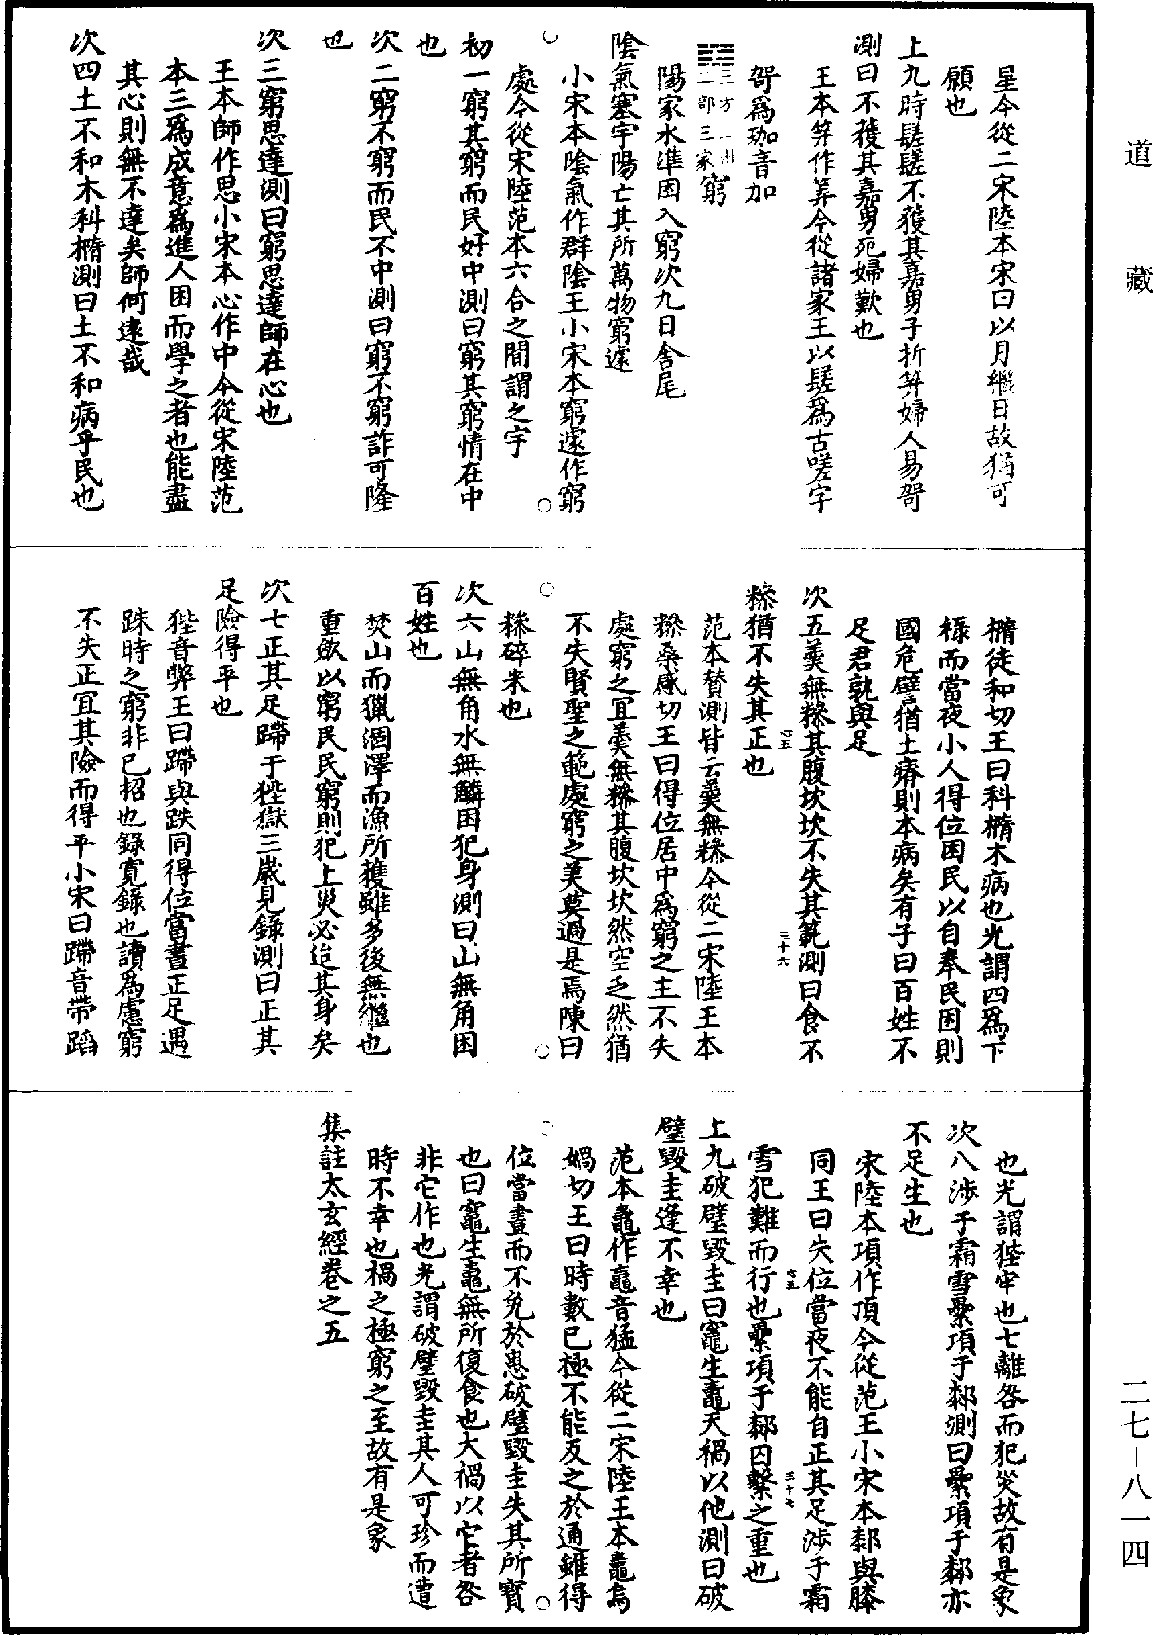 道藏
二七—八一四
星今從二宋陸本宋曰以月繼日故猶可
願也
上九時𨲠𨲠不獲其嘉男子折笄婦人易哿
測曰不獲其嘉男死婦歎也
王本笄作筭今從諸家王以𨲠爲古嗟字
哿爲珈音加
三方一州
二部三家窮
陽家水準困入窮次九日舍尾
陰氣塞宇陽亡其所萬物窮遽
小宋本陰氣作群陰王小宋本窮遽作窮
處今從宋陸范本六合之間謂之宇
初一窮其窮而民好中測曰窮其窮情在中
也
次二窮不窮而民不中測曰窮不窮詐可隆
也
次三窮思達測曰窮思達師在心也
王本師作思小宋本心作中今從宋陸范
本三爲成意爲進人困而學之者也能盡
其心則無不達矣師何遠哉
次四土不和木科橢測曰土不和病乎民也
橢徒和切王曰科橢木病也光謂四爲下
祿而當夜小人得位困民以自奉民困則
國危譬猶土瘠則本病矣有子曰百姓不
足君孰與足
次五羹無糝其腹坎坎不失其範測曰食不
糝猶不失其正也
范本贊測皆云羹無糝今從二宋陸王本
糝桑感切王曰得位居中爲窮之主不失
處窮之宜羹無糝其腹坎坎然空乏然猶
不失賢聖之範處窮之美莫過是焉陳曰
糝碎米也
次六山無角水無鱗困犯身測曰山無角困
百姓也
焚山而獵涸澤而漁所獲雖多後無繼也
重斂以窮民民窮則犯上災必迨其身矣
次七正其足蹛于狴獄三歲見錄測曰正其
足險得平也
狴音弊王曰蹛與跌同得位當晝正足遇
跦時之窮非已招也錄寬錄也讀爲慮窮
不失正宜其險而得平小宋曰蹛音帶蹈
也光謂狴牢也七離咎而犯災故有是象
次八涉于霜雪纍項于厀測曰纍項于厀亦
不足生也
宋陸本項作頂今從范王小宋本厀與膝
同王曰失位當夜不能自正其足涉于霜
雪犯難而行也纍項于厀囚繫之重也
上九破璧毀圭曰竈生鼃天禍以他測曰破
璧毀圭逢不幸也
范本鼃作黽音猛今從二宋陸王本鼃烏
媧切王曰時數已極不能反之於通雖得
位當晝而不免於患破璧毀圭失其所寶
也曰竈生鼃無所復食也大禍以它者咎
非它作也光謂破璧毀圭其人可珍而遭
時不幸也禍之極窮之至故有是象
集註太玄經卷之五